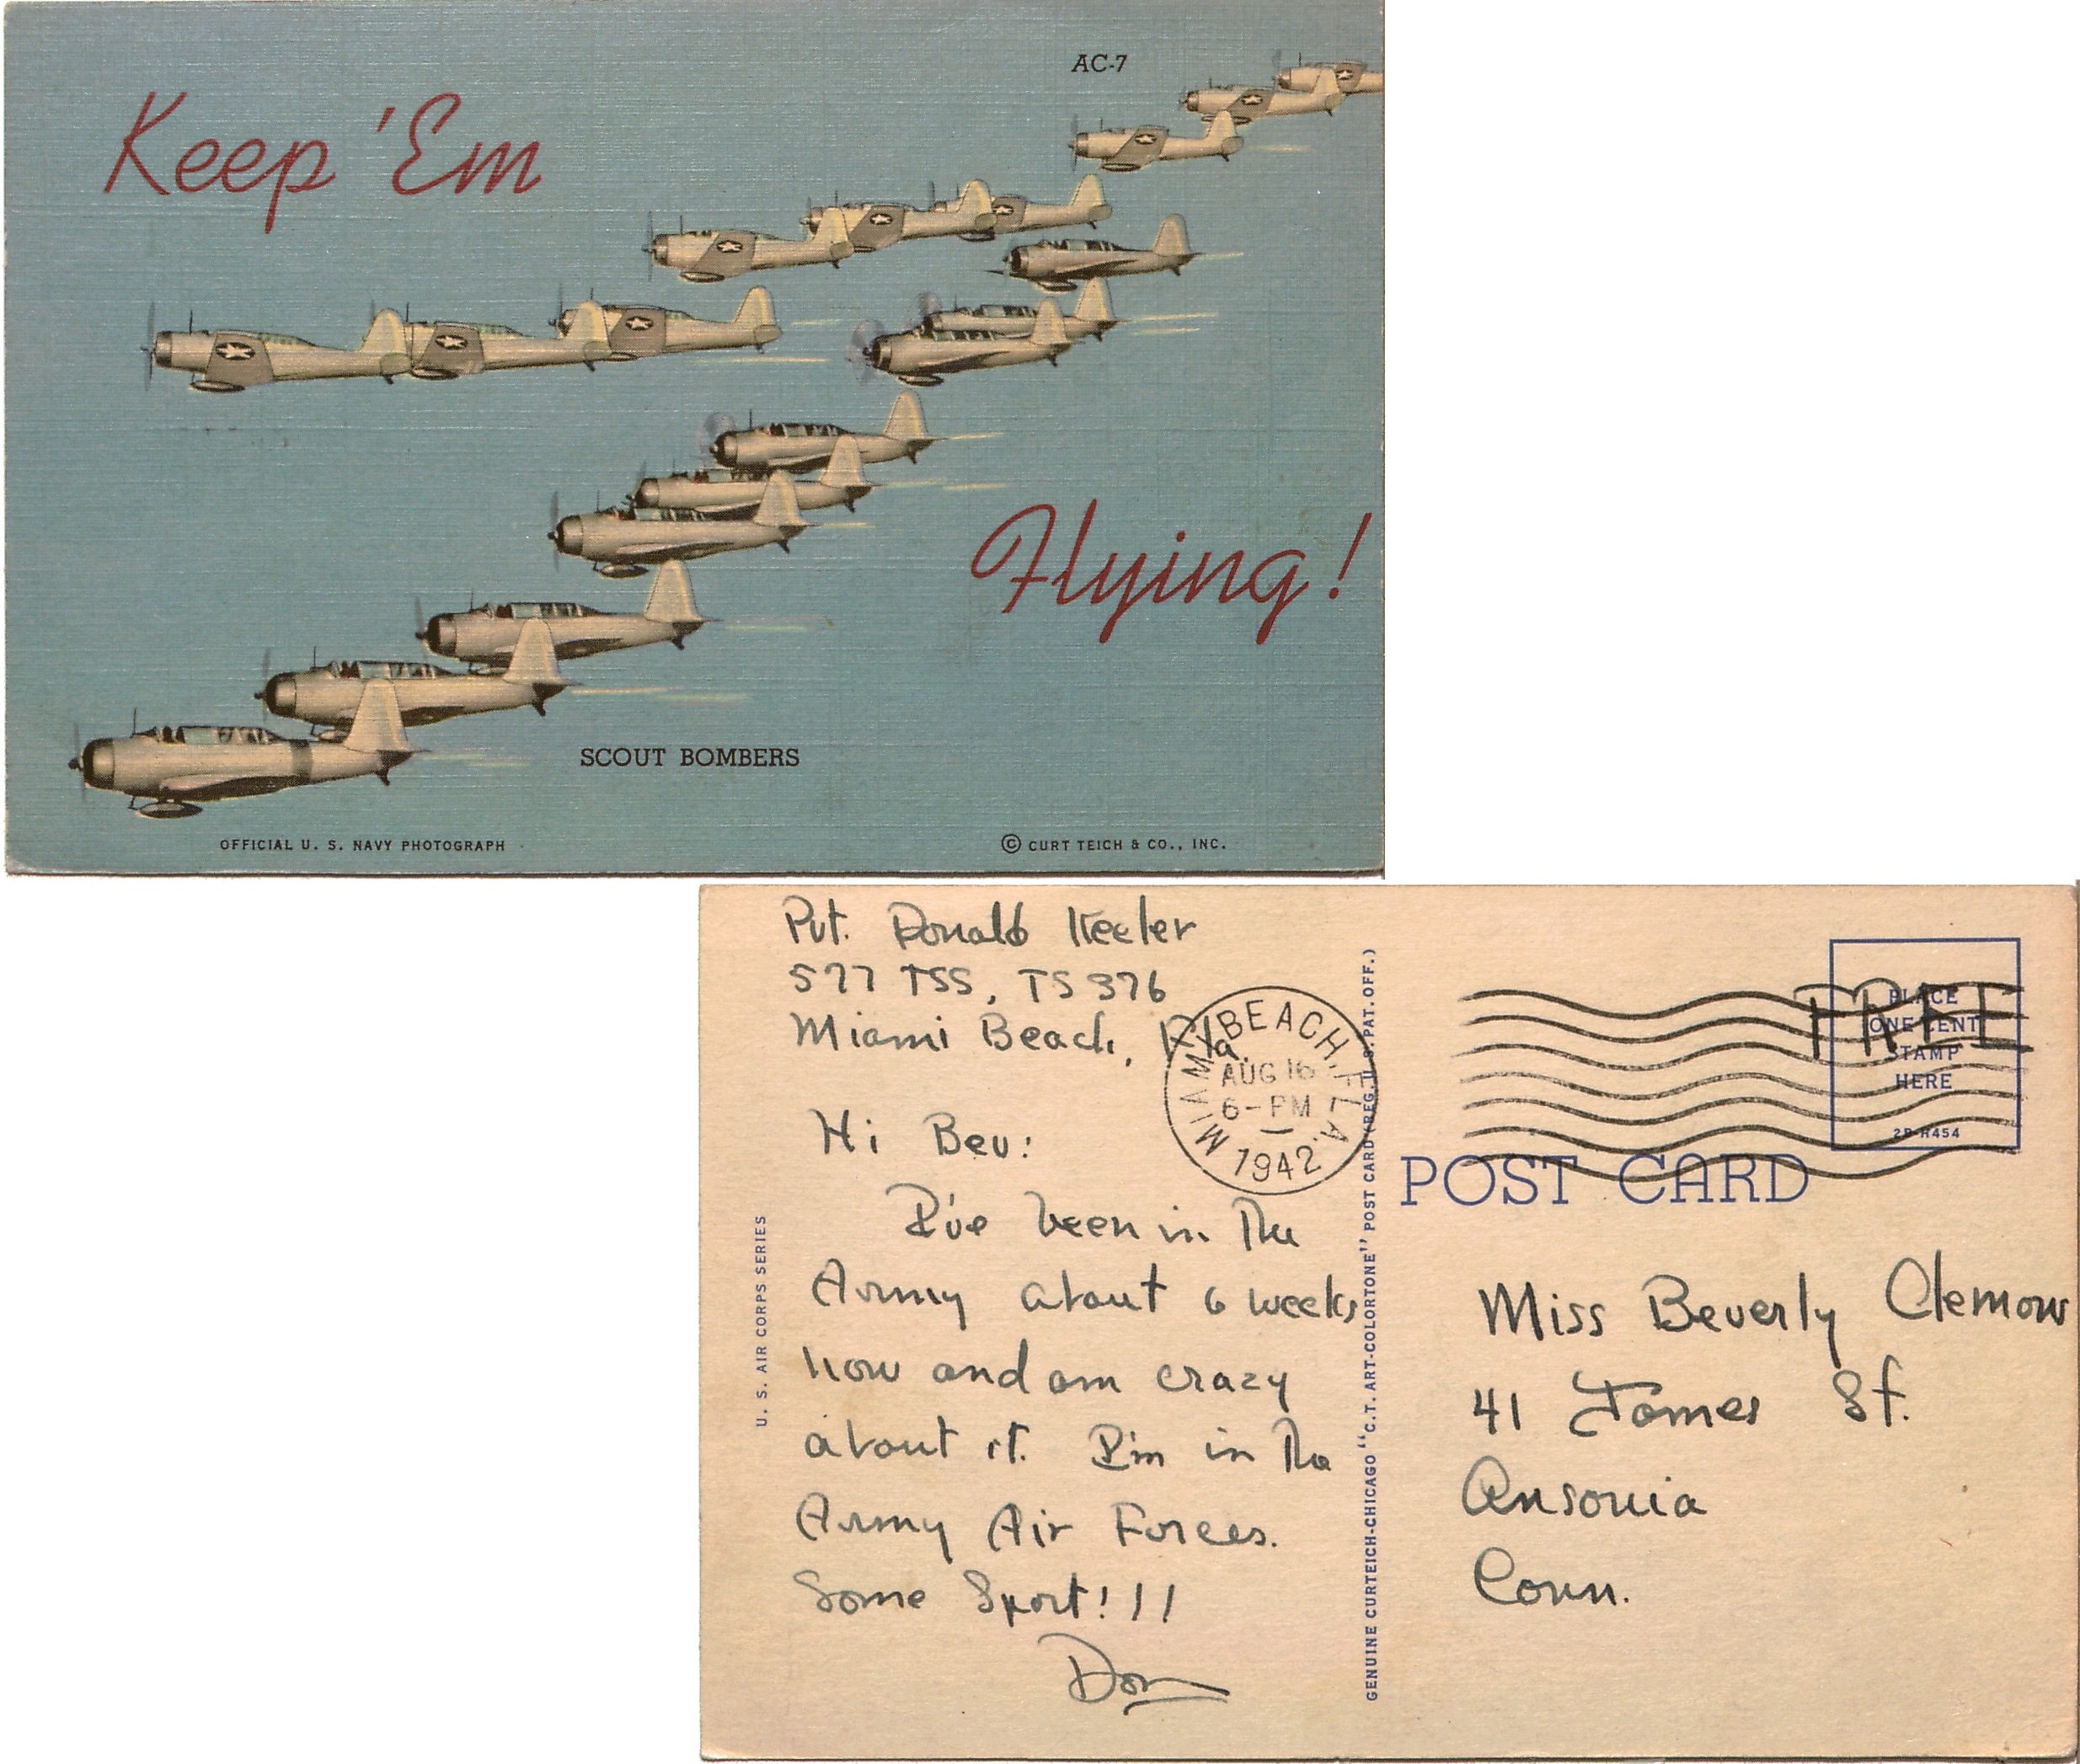 AC-7
Keep 'Em
Flying!
SCOUT BOMBERS
OFFICIAL U. S. NAVY PHOTOGRAPH
© CURT TEICH & CO., INC.
Pvt. Donald Keeler
577 TSS, TS 376
Miami Beach, Fla.
MIAMI BEACH, FLA.
AUG 16
6-PM
1942
Hi Bev:
I've been in the
Army about 6 weeks
now and am crazy
about it. I'm in the
Army Air Forces.
Some Sport!!!
Don
U. S. AIR CORPS SERIES
GENUINE CURTEICH-CHICAGO "C.T. ART-COLORTONE" POST CARD (REG. U.S. PAT. OFF.)
FREE
PLACE
ONE CENT
STAMP
HERE
2B-H454
POST CARD
Miss Beverly Clemow
41 James St.
Ansonia
Conn.